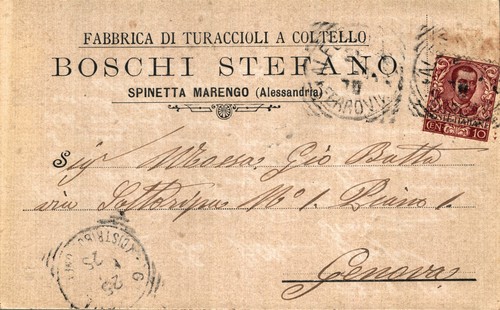 FABBRICA DI TURACCIOLI A COLTELLO
BOSCHI STEFANO
SPINETTA MARENGO (Alessandria)
FERROVIA
CEN 10
Sig Massa Gio Batta
via Sottoripa No 1. Piano 1.
Genova